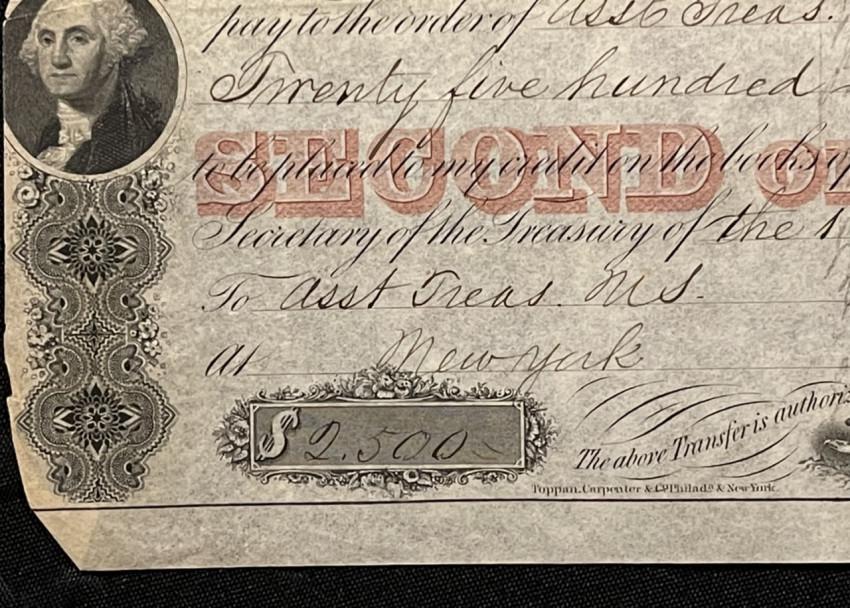 pay to the order of Asst Treas.
Twenty five hundred
SECOND
to be placed to my credit on the books of
Secretary of the Treasury of the
To Asst Treas. U.S.
At New York
$ 2.500-
The above Transfer is authoriz
Toppan, Carpenter & Co. Philada. & New York.